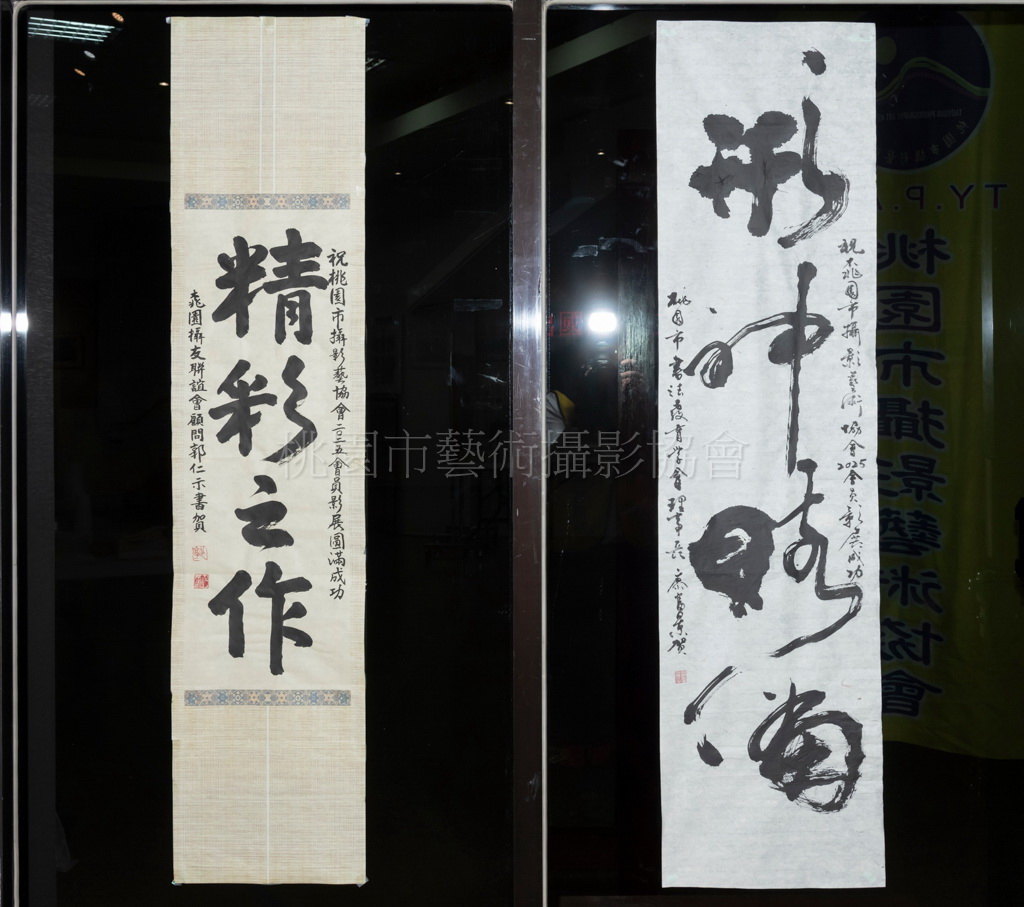 祝桃園市攝影藝協會二〇二五會員影展圓滿成功
精彩之作
桃園攝友聯誼會顧問郭仁示書賀
祝木桃園市攝影藝術協會2025會員影展成功
形神畧備
桃園市書法教育學會理事長
桃園市藝術攝影協會
T.Y.P.A
桃園市攝影藝術協會